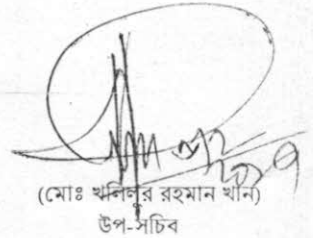 (মোঃ খলিলুর রহমান খান)
উপ-সচিব